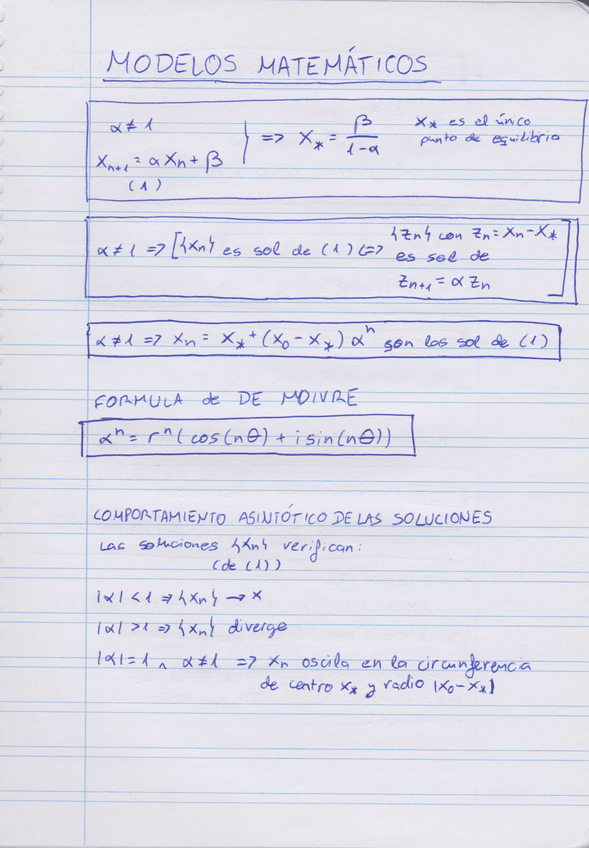 MODELOS MATEMÁTICOS
α ≠ 1
x_{n+1} = αx_n + β } => x_* = β/(1-α)
(1)
x_* es el único
punto de equilibrio
α ≠ 1 => [{x_n} es sol de (1) <=> {z_n} con z_n = x_n - x_*
es sol de
z_{n+1} = α z_n]
α ≠ 1 => x_n = x_* + (x_0 - x_*) α^n son las sol de (1)
FORMULA de DE MOIVRE
α^n = r^n (cos(nθ) + i sin(nθ))
COMPORTAMIENTO ASINTÓTICO DE LAS SOLUCIONES
Las soluciones {x_n} verifican:
(de (1))
|α| < 1 => {x_n} → x
|α| > 1 => {x_n} diverge
|α| = 1 ∧ α ≠ 1 => x_n oscila en la circunferencia
de centro x_* y radio |x_0 - x_*|